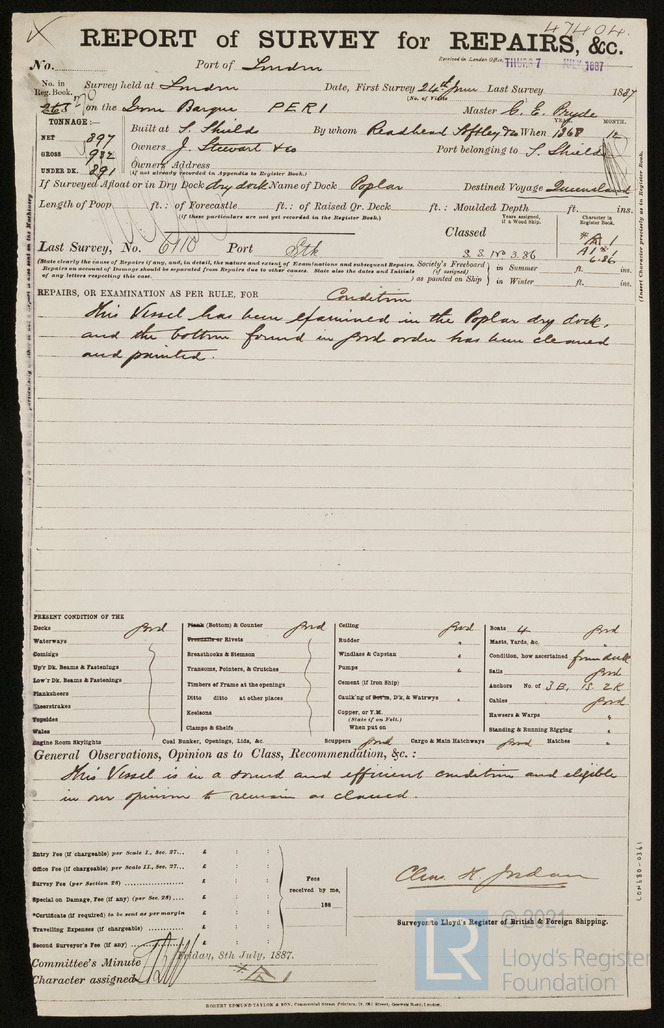 47404.
REPORT of SURVEY for REPAIRS, &c.
Received in London Office, THURS 7 JULY 1887
No. Port of London
No. in Reg. Book. Survey held at London Date, First Survey 24th June Last Survey 1887
(No. of Visits)
on the Iron Barque PERI Master C. E. Pryde
TONNAGE:—
NET 897
GROSS 932
UNDER DK. 891
Built at S. Shields By whom Readhead Softley & Co When YEAR. 1868 MONTH. 12
Owners J. Stewart & Co Port belonging to S. Shields
Owners Address
(if not already recorded in Appendix to Register Book.)
If Surveyed Afloat or in Dry Dock dry dock Name of Dock Poplar Destined Voyage Queensland
Length of Poop ft.: of Forecastle ft.: of Raised Qr. Deck ft.: Moulded Depth ft. ins.
(if these particulars are not yet recorded in the Register Book.)
Years assigned, if a Wood Ship.
Character in Register Book.
Classed
Last Survey, No. 6110 Port Stk
S.S. No 3.86
A 1
6.86
(State clearly the cause of Repairs if any, and, in detail, the nature and extent of Examinations and subsequent Repairs.
Repairs on account of Damage should be separated from Repairs due to other causes. State also the dates and Initials
of any letters respecting this case.
Society's Freeboard (if assigned) as painted on Ship
in Summer ft. ins.
in Winter ft. ins.
(Insert Character precisely as in Register Book.
REPAIRS, OR EXAMINATION AS PER RULE, FOR Condition
This Vessel has been examined in the Poplar dry dock,
and the bottom found in good order has been cleaned
and painted.
PRESENT CONDITION OF THE
Decks good
Waterways
Comings
Up'r Dk. Beams & Fastenings
Low'r Dk. Beams & Fastenings
Planksheers
Sheerstrakes
Topsides
Wales
Engine Room Skylights
Plank (Bottom) & Counter good
Treenails or Rivets
Breasthooks & Stemson
Transoms, Pointers, & Crutches
Timbers of Frame at the openings
Ditto ditto at other places
Keelsons
Clamps & Shelfs
Coal Bunker, Openings, Lids, &c.
Ceiling good
Rudder "
Windlass & Capstan "
Pumps "
Cement (if Iron Ship)
Caulk'ng of Bott'm, D'k, & Watrwys "
Copper, or Y.M.
(State if on Felt.)
When put on
Scuppers good
Cargo & Main Hatchways good
Boats 4 good
Masts, Yards, &c. "
Condition, how ascertained from deck
Sails good
Anchors No. of 3B, 1S. 2K
Cables good
Hawsers & Warps "
Standing & Running Rigging "
Hatches "
General Observations, Opinion as to Class, Recommendation, &c. :
This Vessel is in a sound and efficient condition and eligible
in our opinion to remain as classed.
Entry Fee (if chargeable) per Scale I., Sec. 27... £ : :
Office Fee (if chargeable) per Scale II., Sec. 27... £ : :
Survey Fee (per Section 28) £ : :
Special on Damage, Fee (if any) (per Sec. 28) £ : :
*Certificate (if required) to be sent as per margin £ : :
Travelling Expenses (if chargeable) £ : :
Second Surveyor's Fee (if any) £ : :
Fees
received by me,
188
Chas. H. Jordan
Surveyor to Lloyd's Register of British & Foreign Shipping.
Committee's Minute Friday, 8th July, 1887.
Character assigned
ROBERT EDMUND TAYLOR & SON, Commercial Steam Printers, 19, Old Street, Goswell Road, London.
LON680-0361
© 2021
LR
Lloyd's Register
Foundation